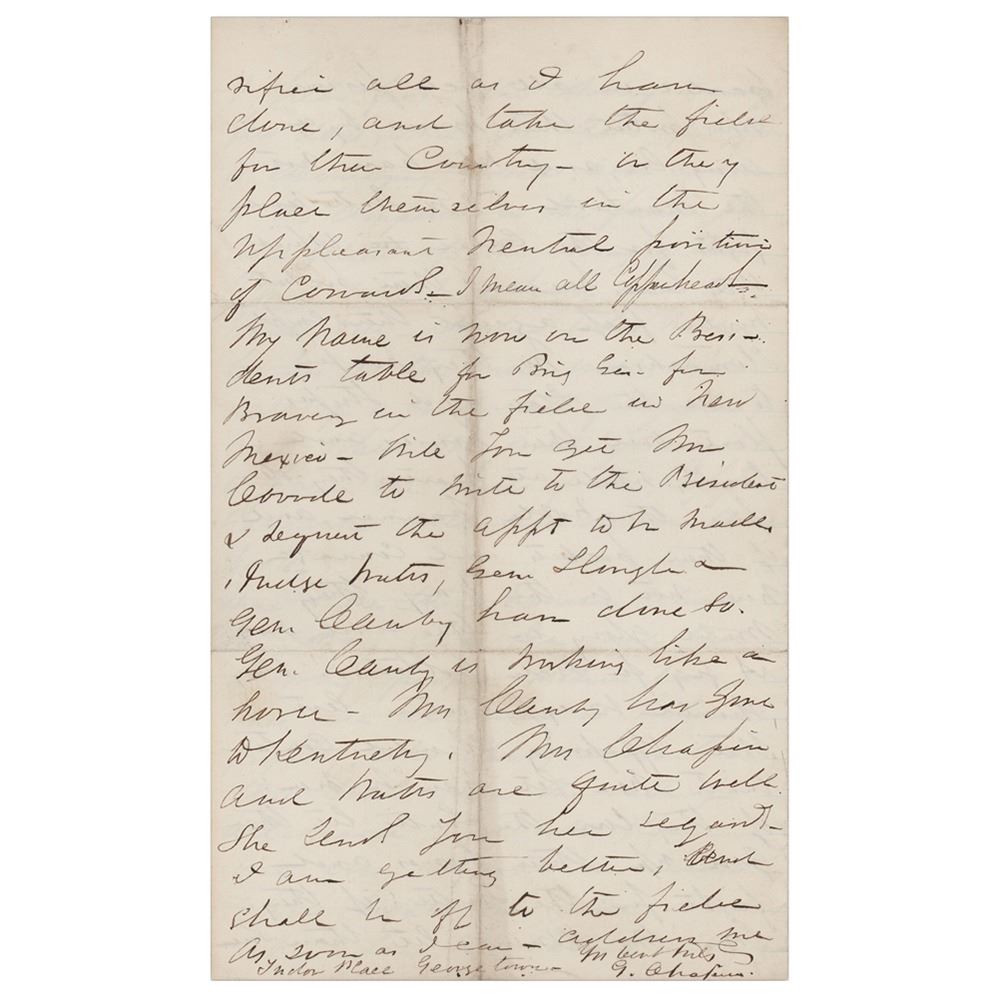 rifice all as I have
done, and take the field
for their Country — or they
place themselves in the
unpleasant neutral position
of Cowards — I mean all Copperheads —
My Name is now on the Presi-
dents table for Brig Gen. for
Bravery in the field in New
Mexico — Will you get Mr
Covode to write to the President
& request the appt to be made.
Judge Watts, Genl Slough &
Gen. Canby have done so.
Gen. Canby is working like a
horse — Mrs Canby has gone
to Kentucky. Mrs Chapin
and Watts are quite well.
She sends you her regards —
I am getting better, and
shall be off to the field
as soon as I can — address me
Tudor Place Georgetown —
G. Chapin.